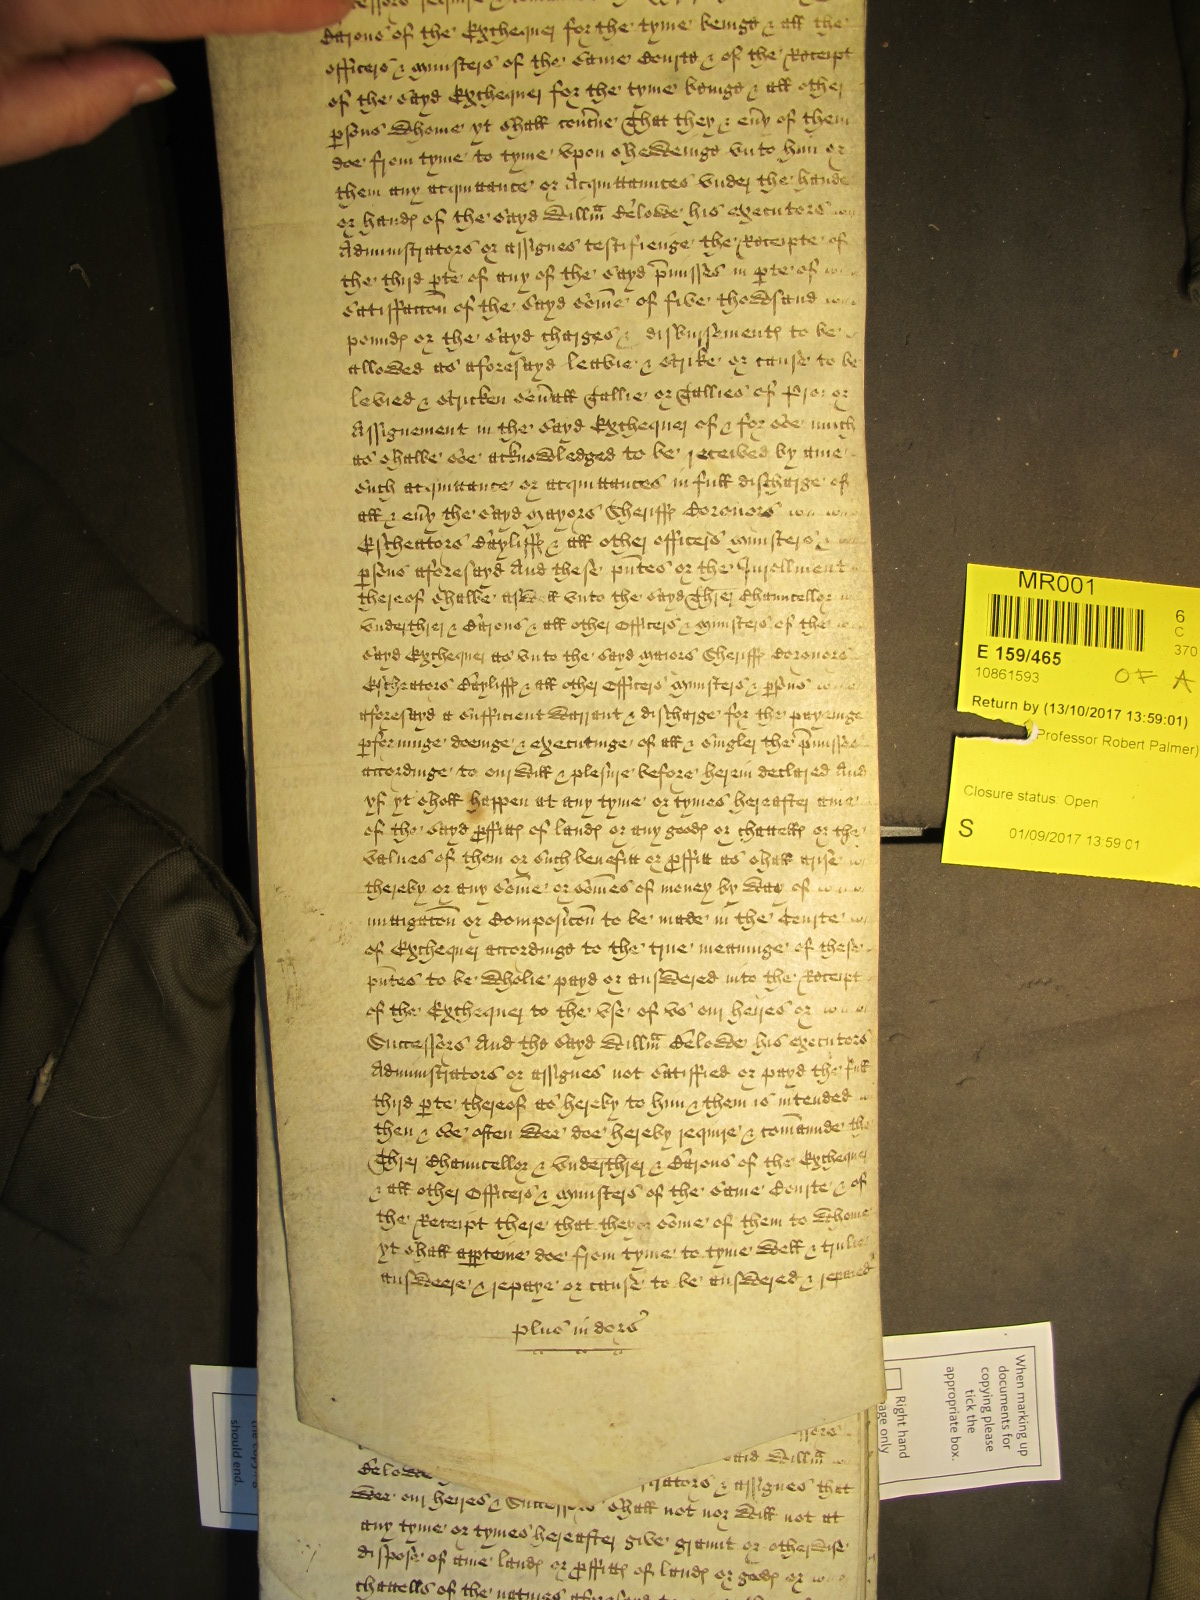 Barons of the Exchequer for the tyme beinge & all the
officers & ministers of the same Courte & of the Receipt
of the sayd Exchequer for the tyme beinge & all other
psons whome yt shall concne That they & eny of them
doe from tyme to tyme vpon shewinge vnto him or
them any acquittance or Acquittannces vnder the hande
or hands of the sayd Willm Belowe his executors
Administrators or assignes testifienge the Receipte of
the third pte of any of the sayd pmisses in pte of
satisfaccon of the sayd some of five thowsand
pounds or the sayd charges & disbursements to be
allowed as aforesayd leavie & strike or cause to be
levied & stricken seuall Tallie or Tallies of Pro or
Assignement in the sayd Exchequer of & for soe much
as shalbe soe acknowledged to be received by anie
such acquittance or acquittances in full discharge of
all & eny the sayd Mayors Sheriffs Coronors
Escheators Bayliffs & all other officers ministers &
psons aforesayd And these pntes or the Inrollment
thereof shalbe aswell vnto the sayd Threr Chauncellor
vnderthrer & Barons & all other Officers & ministers of the
sayd Exchequer as vnto the sayd maiors Sheriffs Coronors
Escheators Bayliffs & all other Officers ministers & psons
aforesayd a sufficient warrant & discharge for the payenge
pforminge doenge & executinge of all & singler the pmisses
accordinge to our will & plesure before herein declared And
yf yt shall happen at any tyme or tymes hereafter anie
of the sayd pffitts of lands or any goods or chattells or the
values of them or such benefitt or pffitt as shall arise
thereby or any some or somes of money by way of
mitigacon or Composicon to be made in the Courte
of Exchequer accordinge to the true meaninge of these
pntes to be wholie payd or answered into the Receipt
of the Exchequer to the vse of vs our heires or
Successors And the sayd Willm Belowe his executors
Administrators or assignes not satisfied or payd the full
third pte thereof as hereby to him & them is intended
then & soe often wee doe hereby require & commaunde the
Threr Chauncellor & vnderthrer & Barons of the Exchequer
& all other Officers & ministers of the same Courte & of
the Receipt there that they or some of them to whome
yt shall appteine doe from tyme to tyme well & trulie
answeere & repaye or cause to be answered & repaied
plus in dors
said Willm
Belowe
assignes that
wee our heires & Successors shall not nor will not at
any tyme or tymes hereafter give graunt or otherwise
dispose of anie lands or pffitts of lands or goods or
chattells of the natures aforesayd
MR001
6
C
370
E 159/465
10861593
OF A
Return by (13/10/2017 13:59:01)
Professor Robert Palmer)
Closure status: Open
S
01/09/2017 13:59:01
When marking up
documents for
copying please
tick the
appropriate box.
Right hand
page only
should end.